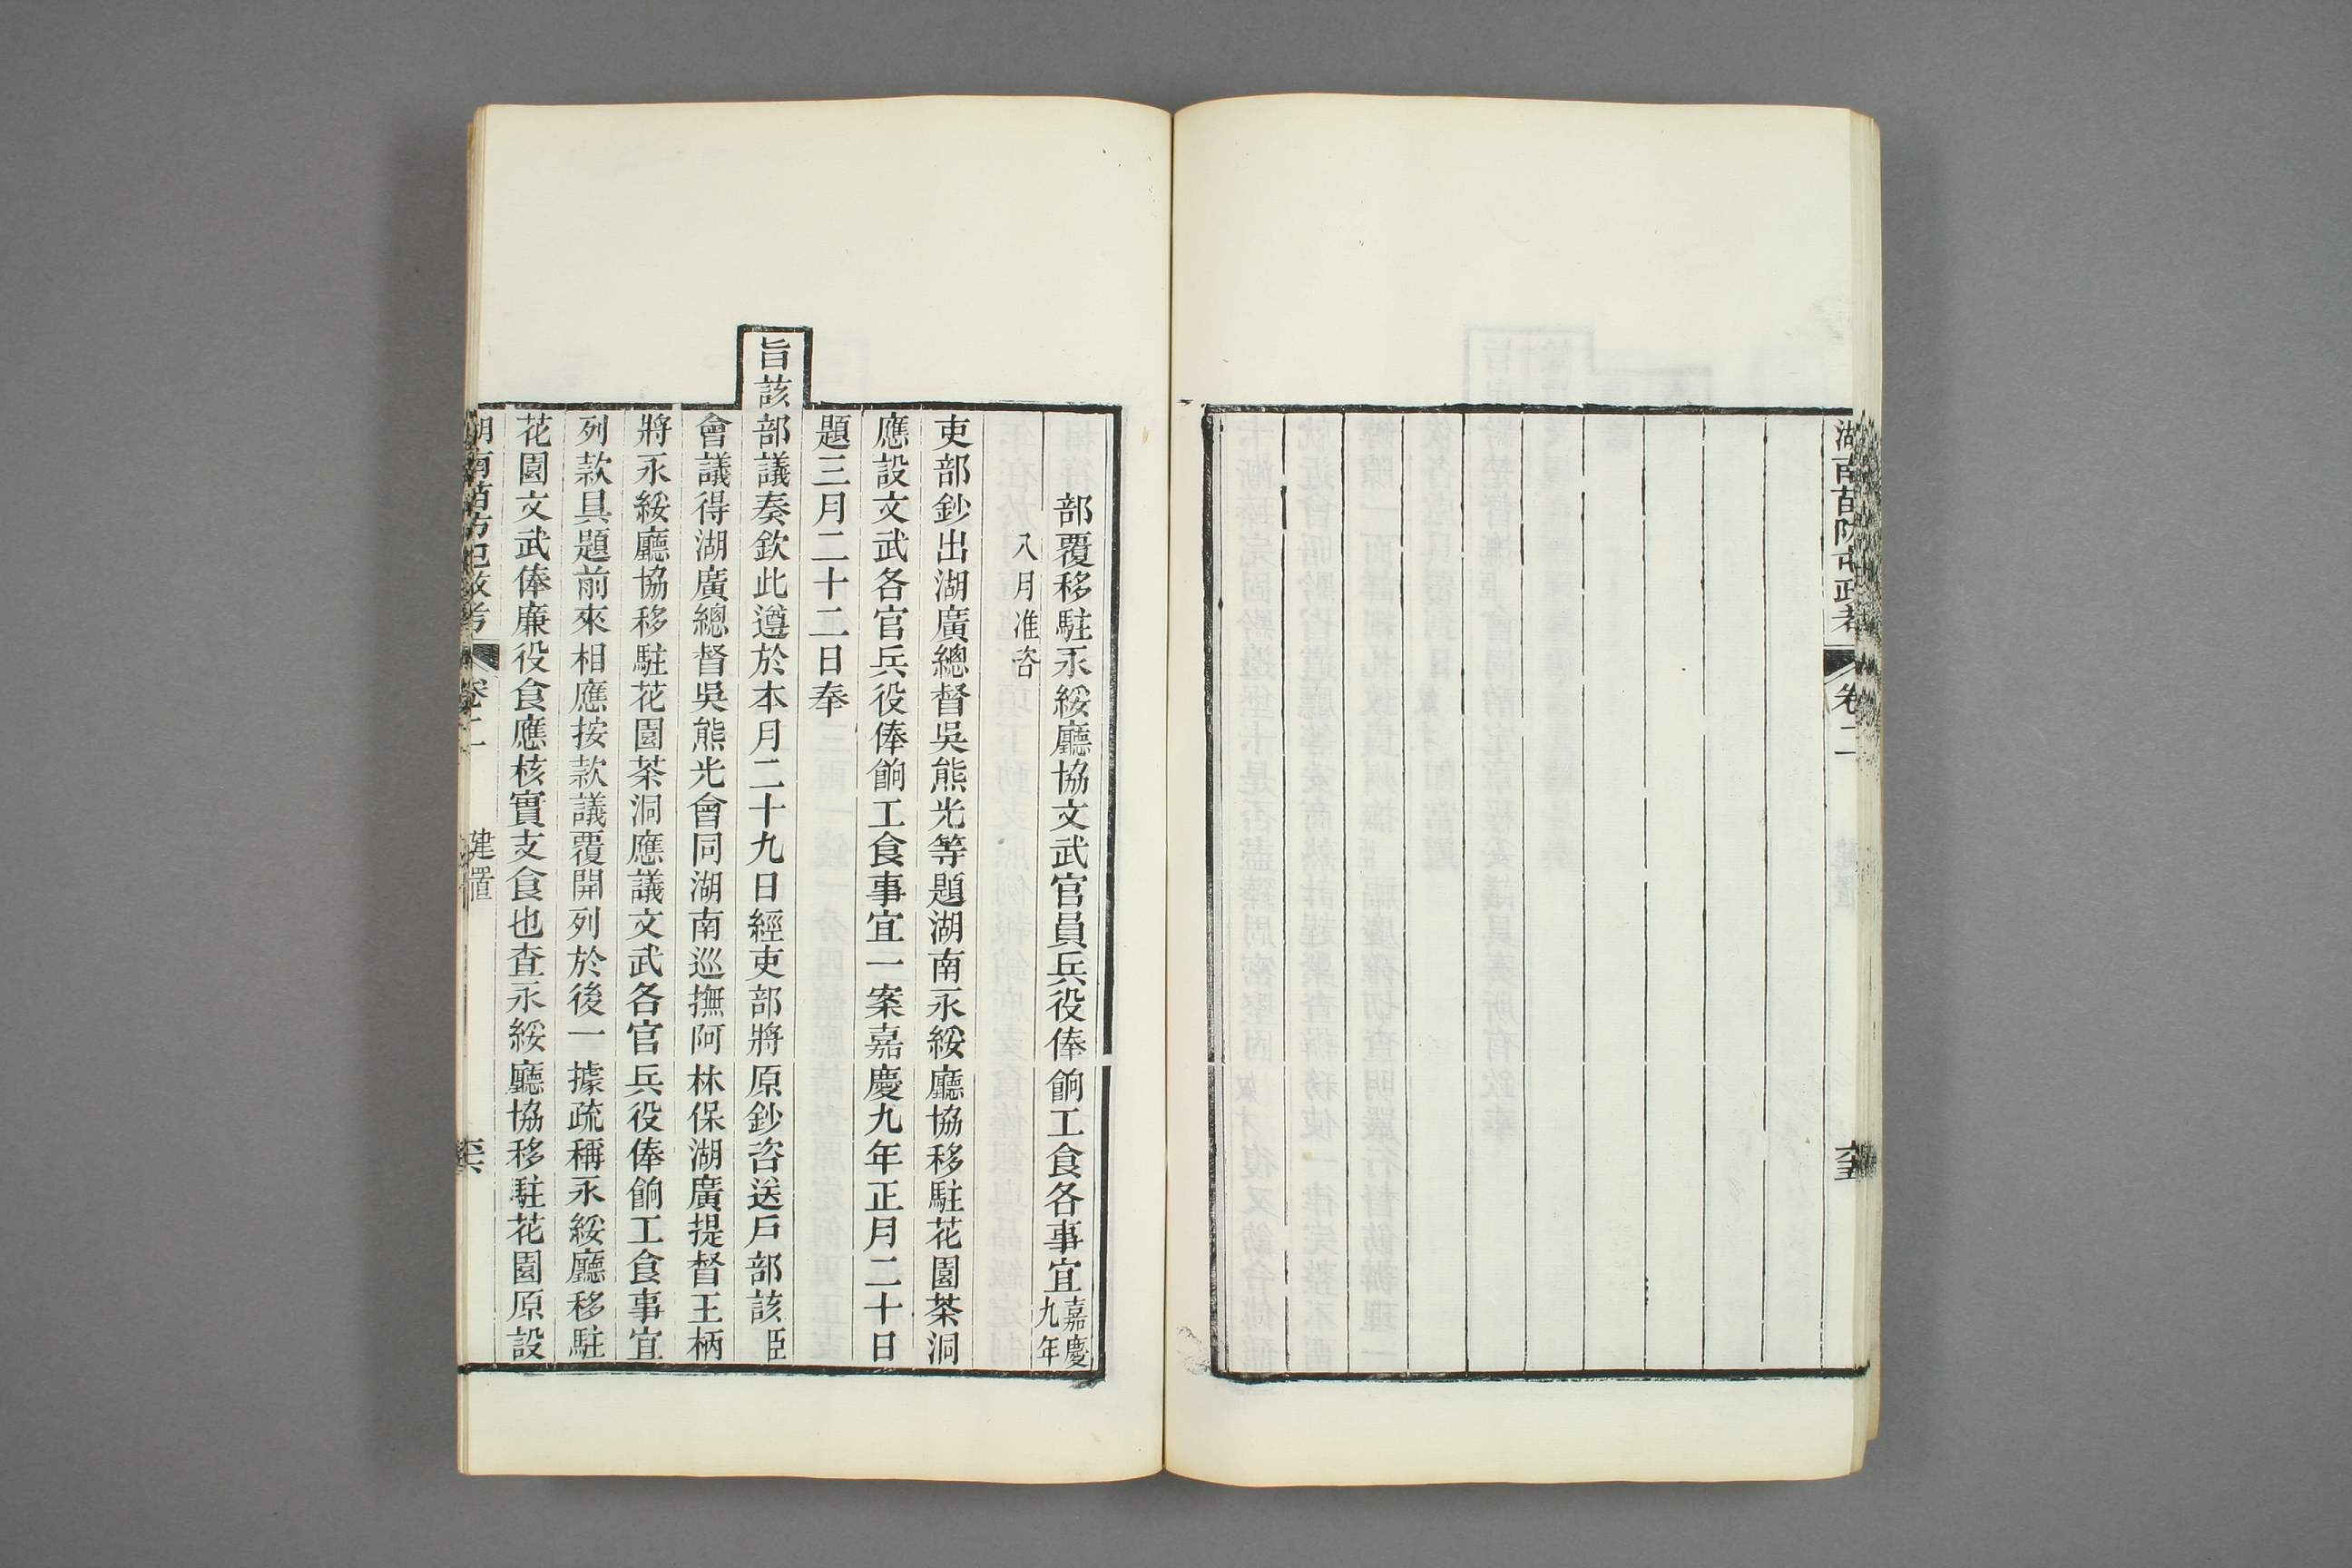 湖南苗防屯政考
卷二
部覆移駐永綏廳協文武官員兵役俸餉工食各事宜嘉慶九年
八月准咨
吏部鈔出湖廣總督吳熊光等題湖南永綏廳協移駐花園茶洞
應設文武各官兵役俸餉工食事宜一案嘉慶九年正月二十日
題三月二十二日奉
旨該部議奏欽此遵於本月二十九日經吏部將原鈔咨送戶部該臣
會議得湖廣總督吳熊光會同湖南巡撫阿林保湖廣提督王柄
將永綏廳協移駐花園茶洞應議文武各官兵役俸餉工食事宜
列款具題前來相應按款議覆開列於後一據疏稱永綏廳移駐
花園文武俸廉役食應核實支食也查永綏廳協移駐花園原設
湖南苗防屯政考
卷二
建置